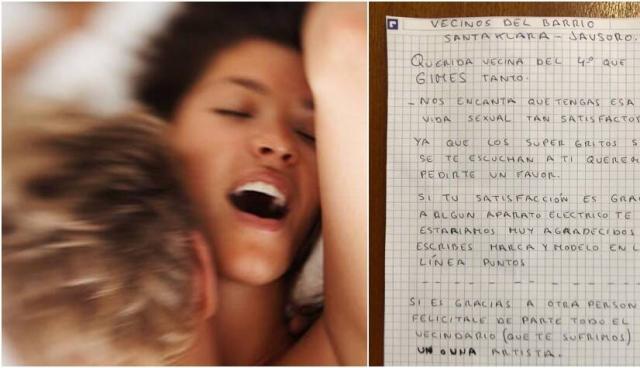 VECINOS DEL BARRIO
SANTA KLARA - JAUSORO.
QUERIDA VECINA DEL 4º QUE
GIMES TANTO.
- NOS ENCANTA QUE TENGAS ESA
VIDA SEXUAL TAN SATISFACTOR
YA QUE LOS SUPER GRITOS S
SE TE ESCUCHAN A TI QUEREM
PEDIRTE UN FAVOR.
SI TU SATISFACCIÓN ES GRA
A ALGUN APARATO ELECTRICO TE
ESTARIAMOS MUY AGRADECIDOS
ESCRIBES MARCA Y MODELO EN L
LÍNEA PUNTOS
SI ES GRACIAS A OTRA PERSON
FELICITALE DE PARTE TODO EL
VECINDARIO (QUE TE SUFRIMOS)
UN O UNA ARTISTA.